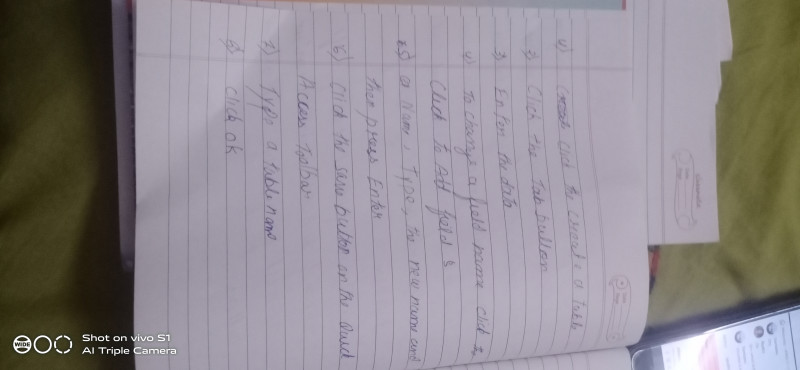 1) Click the create a table
2) Click the Tab button
3) Enter the data
4) To change a field name click
Click to Add field &
5) a name, Type, the new name and
then press Enter
6) Click the save button on the Quick
Access Toolbar
7) Type a table name
8) click ok
Shot on vivo S1
AI Triple Camera
WIDE